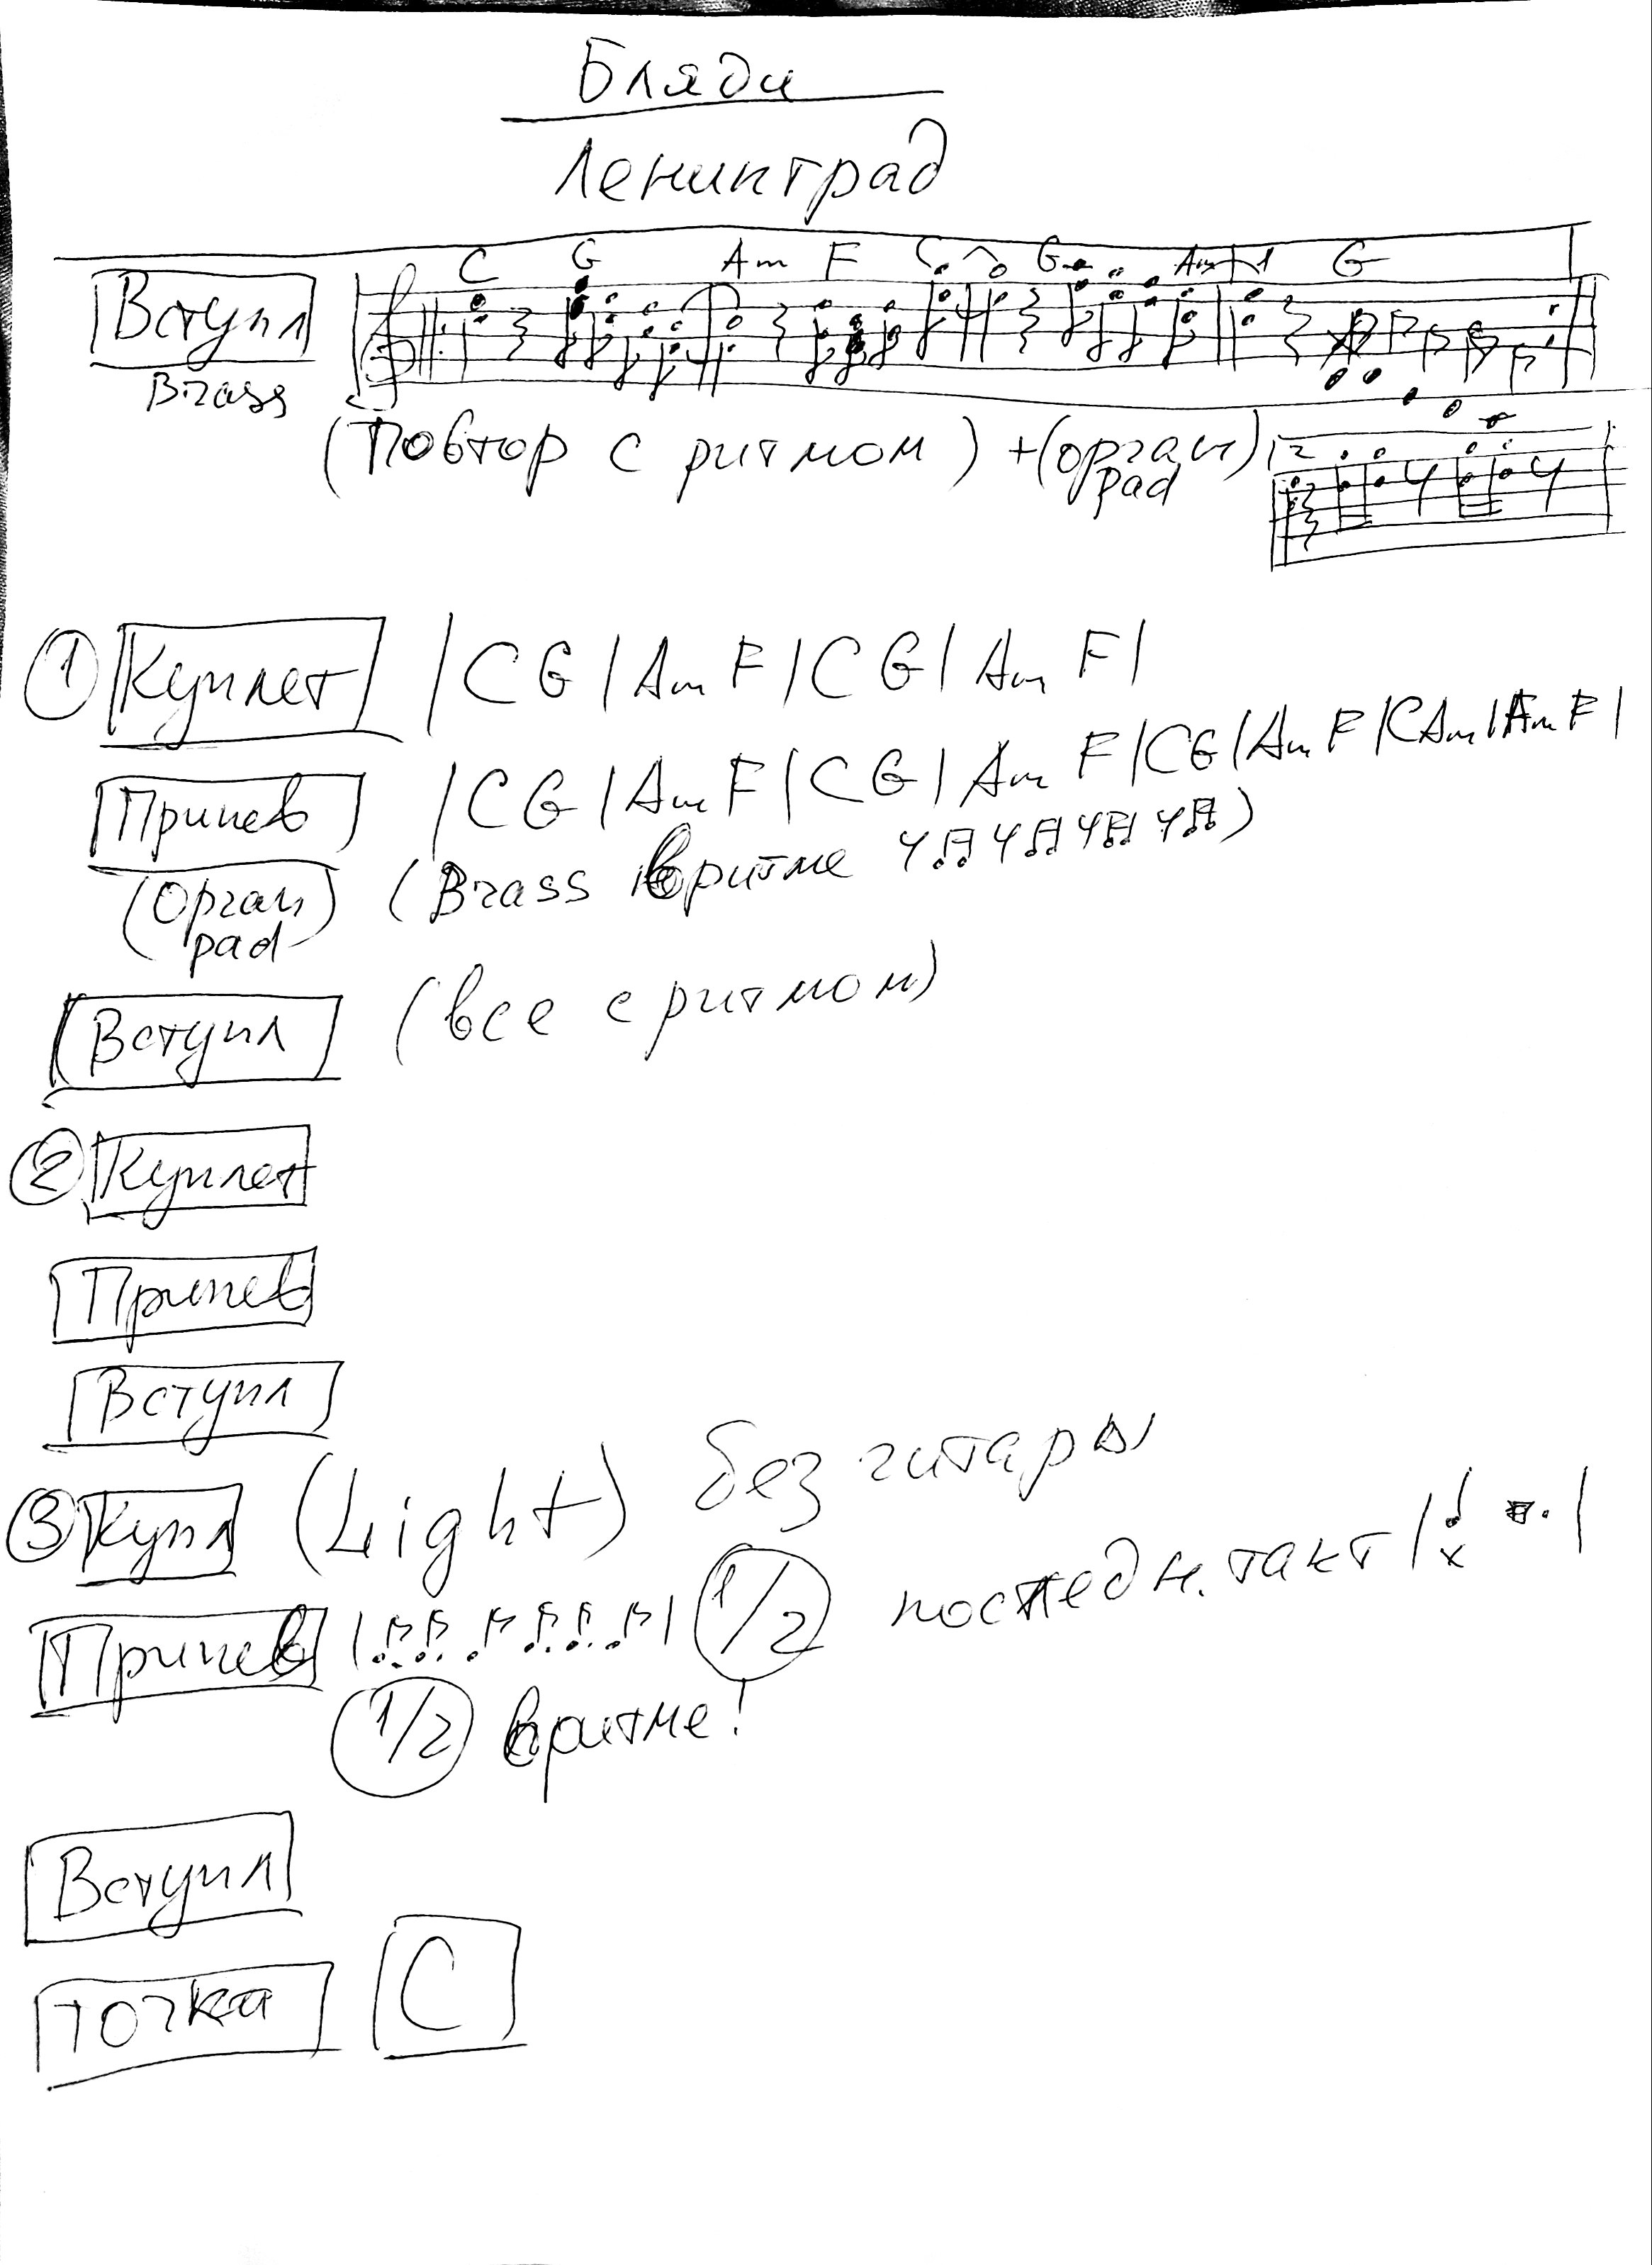 Бляди
Ленинград
C G Am F C G Am 1 G
Вступл
Brass
(Повтор с ритмом) + (орган pad) 2
① Куплет | C G | Am F | C G | Am F |
Припев | C G | Am F | C G | Am F | C G | Am F | C Am | Am F |
(Орган pad) (Brass в ритме )
Вступл (все с ритмом)
② Куплет
Припев
Вступл
③ Купл (Light) без гитары
Припев 1/2 последн. такт
1/2 в ритме!
Вступл
точка C